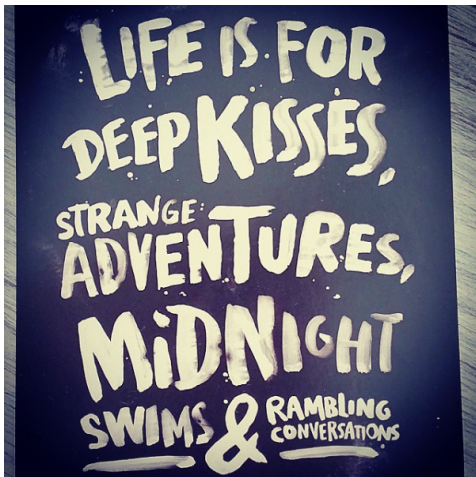 LIFE IS FOR
DEEP KISSES,
STRANGE
ADVENTURES,
MiDNIGHT
SWIMS & RAMBLING
CONVERSATIONS